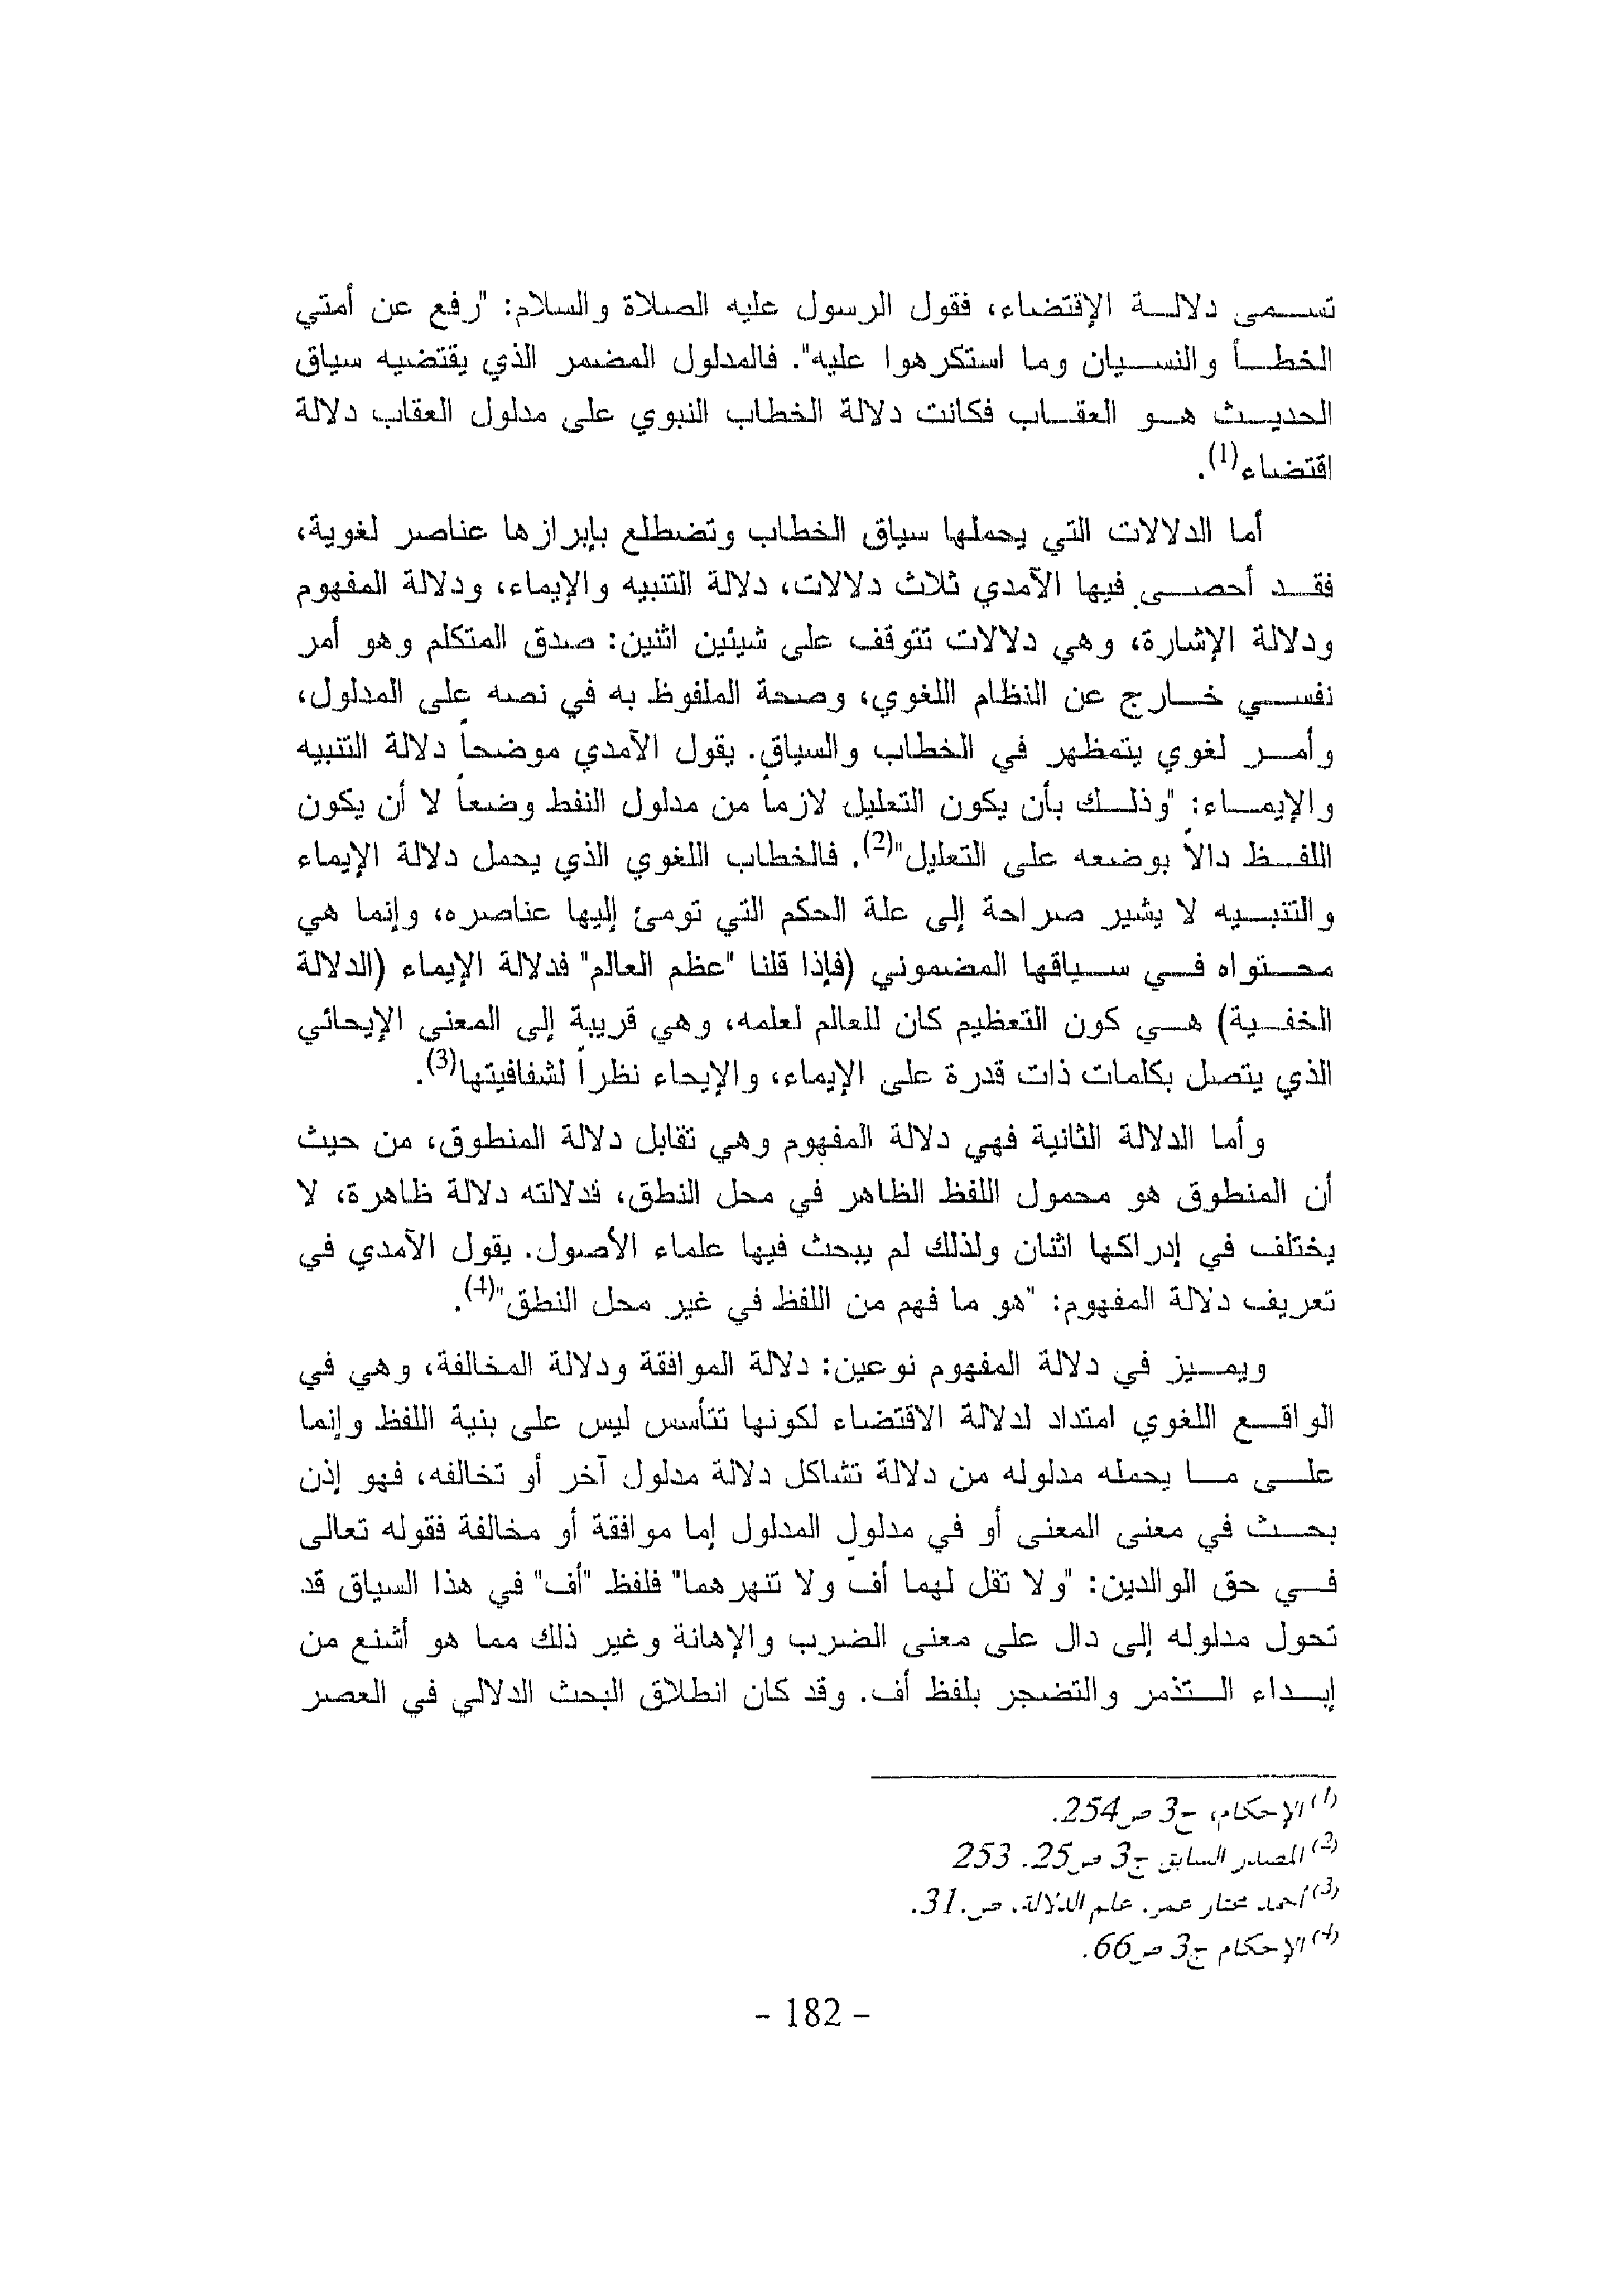 تسمى دلالة الإقتضاء، فقول الرسول عليه الصلاة والسلام: "رفع عن أمتي
الخطأ والنسيان وما استكرهوا عليه". فالمدلول المضمر الذي يقتضيه سياق
الحديث هو العقاب فكانت دلالة الخطاب النبوي على مدلول العقاب دلالة
اقتضاء(1).
أما الدلالات التي يحملها سياق الخطاب وتضطلع بإبرازها عناصر لغوية،
فقد أحصى فيها الآمدي ثلاث دلالات، دلالة التنبيه والإيماء، ودلالة المفهوم
ودلالة الإشارة، وهي دلالات تتوقف على شيئين اثنين: صدق المتكلم وهو أمر
نفسي خارج عن النظام اللغوي، وصحة الملفوظ به في نصه على المدلول،
وأمر لغوي يتمظهر في الخطاب والسياق. يقول الآمدي موضحاً دلالة التنبيه
والإيماء: "وذلك بأن يكون التعليل لازماً من مدلول النفط وضعاً لا أن يكون
اللفظ دالاً بوضعه على التعليل"(2). فالخطاب اللغوي الذي يحمل دلالة الإيماء
والتنبيه لا يشير صراحة إلى علة الحكم التي تومئ إليها عناصره، وإنما هي
محتواه في سياقها المضموني (فإذا قلنا "عظم العالم" فدلالة الإيماء (الدلالة
الخفية) هي كون التعظيم كان للعالم لعلمه، وهي قريبة إلى المعنى الإيحائي
الذي يتصل بكلمات ذات قدرة على الإيماء، والإيحاء نظراً لشفافيتها(3).
وأما الدلالة الثانية فهي دلالة المفهوم وهي تقابل دلالة المنطوق، من حيث
أن المنطوق هو محمول اللفظ الظاهر في محل النطق، فدلالته دلالة ظاهرة، لا
يختلف في إدراكها اثنان ولذلك لم يبحث فيها علماء الأصول. يقول الآمدي في
تعريف دلالة المفهوم: "هو ما فهم من اللفظ في غير محل النطق"(4).
ويميز في دلالة المفهوم نوعين: دلالة الموافقة ودلالة المخالفة، وهي في
الواقع اللغوي امتداد لدلالة الاقتضاء لكونها تتأسس ليس على بنية اللفظ وإنما
على ما يحمله مدلوله من دلالة تشاكل دلالة مدلول آخر أو تخالفه، فهو إذن
بحث في معنى المعنى أو في مدلول المدلول إما موافقة أو مخالفة فقوله تعالى
في حق الوالدين: "ولا تقل لهما أفّ ولا تنهرهما" فلفظ "أف" في هذا السياق قد
تحول مدلوله إلى دال على معنى الضرب والإهانة وغير ذلك مما هو أشنع من
إبداء التذمر والتضجر بلفظ أف. وقد كان انطلاق البحث الدلالي في العصر
(1) الإحكام، ج3 ص254.
(2) المصدر السابق ج3 ص25. 253
(3) أحمد مختار عمر. علم الدلالة. ص.31.
(4) الإحكام ج3 ص66.
- 182 -